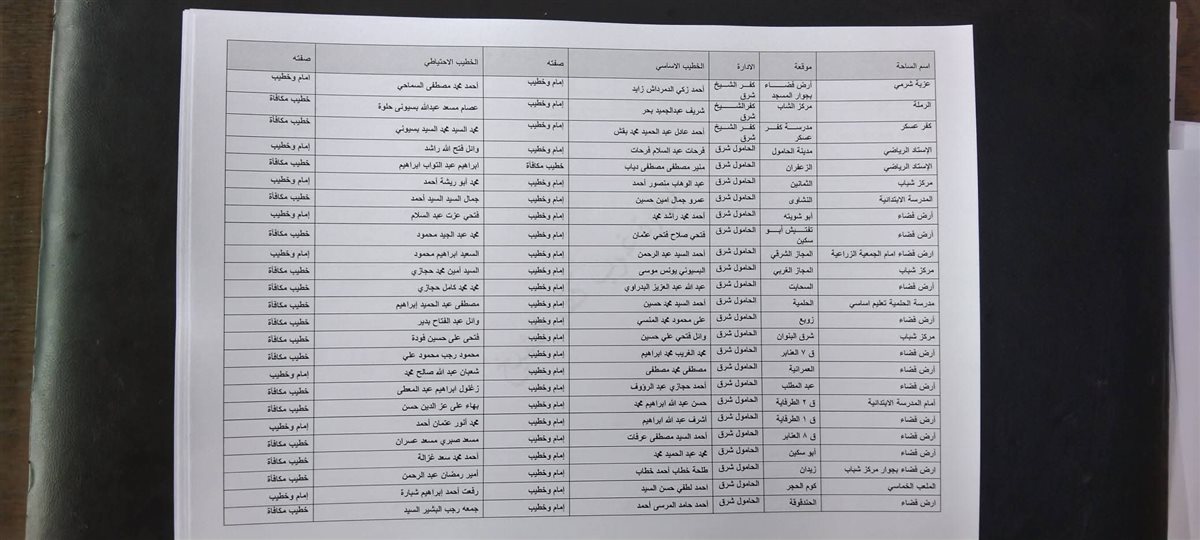 اسم الساحة موقعة الادارة الخطيب الاساسي صفته الخطيب الاحتياطي صفته
عزبة شرمي أرض فضاء بجوار المسجد كفر الشيخ شرق أحمد زكي الدمرداش زايد إمام وخطيب أحمد محمد مصطفى السماحي إمام وخطيب
الرملة مركز الشاب كفر الشيخ شرق شريف عبدالجميد بحر إمام وخطيب عصام مسعد عبدالله بسيونى حلوة خطيب مكافأة
كفر عسكر مدرسة كفر عسكر كفر الشيخ شرق أحمد عادل عبد الحميد محمد بقش إمام وخطيب محمد السيد محمد السيد بسيوني خطيب مكافأة
الإستاد الرياضي مدينة الحامول الحامول شرق فرحات عبد السلام فرحات إمام وخطيب وائل فتح الله راشد إمام وخطيب
الإستاد الرياضي الزعفران الحامول شرق منير مصطفى مصطفى دياب خطيب مكافأة إبراهيم عبد التواب ابراهيم خطيب مكافأة
مركز شباب الثمانين الحامول شرق عبد الوهاب منصور أحمد إمام وخطيب محمد أبو ريشة أحمد إمام وخطيب
المدرسة الابتدانية النشاوى الحامول شرق عمرو جمال امين حسين إمام وخطيب جمال السيد السيد أحمد خطيب مكافأة
أرض فضاء أبو شويته الحامول شرق أحمد محمد راشد محمد إمام وخطيب فتحي عزت عبد السلام إمام وخطيب
أرض فضاء تفتيش أبو سكين الحامول شرق فتحي صلاح فتحي عثمان إمام وخطيب محمد عبد الجيد محمود خطيب مكافأة
ارض فضاء امام الجمعية الزراعية المجاز الشرقي الحامول شرق أحمد السيد عبد الرحمن إمام وخطيب السعيد ابراهيم محمود إمام وخطيب
مركز شباب المجاز الغربي الحامول شرق البسيوني يونس موسى إمام وخطيب السيد أمين محمد حجازي خطيب مكافأة
أرض فضاء السحايت الحامول شرق عبد الله عبد العزيز البدراوي إمام وخطيب محمد محمد كامل حجازي خطيب مكافأة
مدرسة الحلمية تعليم اساسي الحلمية الحامول شرق أحمد السيد محمد حسين إمام وخطيب مصطفى عبد الحميد إبراهيم خطيب مكافأة
أرض فضاء زوبع الحامول شرق على محمود محمد المنسي إمام وخطيب وائل عبد الفتاح بدير خطيب مكافأة
مركز شباب شرق البنوان الحامول شرق وائل فتحي علي حسين إمام وخطيب فتحى على حسين فودة خطيب مكافأة
أرض فضاء ق ٧ العنابر الحامول شرق محمد الغريب محمد ابراهيم إمام وخطيب محمود رجب محمود علي خطيب مكافأة
أرض فضاء العمرانية الحامول شرق مصطفى محمد مصطفى إمام وخطيب شعبان عبد الله صالح محمد خطيب مكافأة
أرض فضاء عبد المطلب الحامول شرق أحمد حجازي عبد الرؤوف إمام وخطيب زغلول ابراهيم عبد المعطى خطيب مكافأة
أمام المدرسة الابتدانية ق ٢ الطرفاية الحامول شرق حسن عبد الله ابراهيم محمد إمام وخطيب بهاء على عز الدين حسن خطيب مكافأة
أرض فضاء ق ١ الطرفاية الحامول شرق أشرف عبد الله ابراهيم إمام وخطيب محمد أنور عثمان أحمد إمام وخطيب
أرض فضاء ق ٨ العنابر الحامول شرق أحمد السيد مصطفى عرفات إمام وخطيب مسعد صبري مسعد عسران خطيب مكافأة
أرض فضاء أبو سكين الحامول شرق محمد عبد الحميد محمد إمام وخطيب أحمد محمد سعد غزالة خطيب مكافأة
ارض فضاء بجوار مركز شباب زيدان الحامول شرق طلحة خطاب أحمد خطاب إمام وخطيب أمير رمضان عبد الرحمن خطيب مكافأة
الملعب الخماسي كوم الحجر الحامول شرق احمد لطفي حسن السيد إمام وخطيب رفعت أحمد إبراهيم شبارة إمام وخطيب
أرض فضاء الحندقوقة الحامول شرق أحمد حامد المرسى أحمد إمام وخطيب جمعه رجب البشير السيد خطيب مكافأة